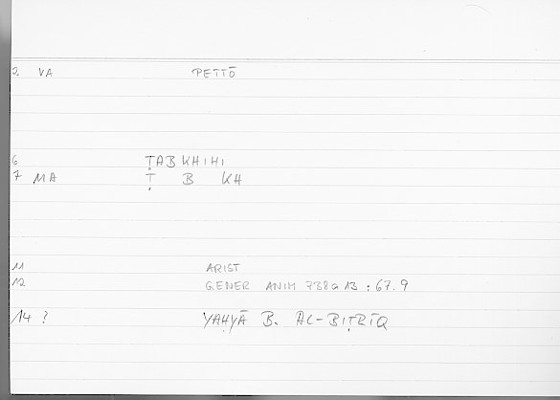 2 VA PETTŌ
6 ṬABKHIHI
7 MA Ṭ B KH
11 ARIST
12 GENER ANIM 738a13 : 67.9
14 ? YAḤYĀ B. AL-BIṬRĪQ